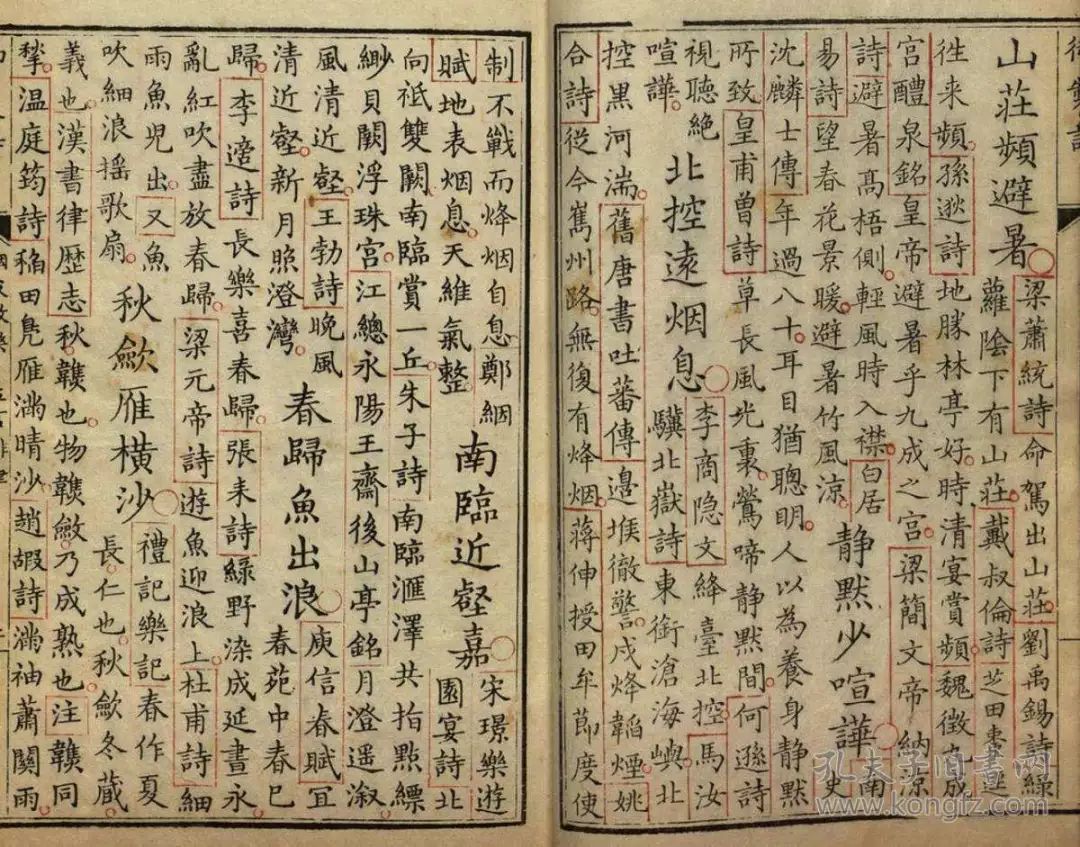 山莊頻避暑
梁蕭統詩命駕出山莊劉禹錫詩綠
蘿陰下有山莊戴叔倫詩芝田東逕
徃来頻孫逖詩地勝林亭好時清宴賞頻魏徵九成
宫醴泉銘皇帝避暑乎九成之宫梁簡文帝納涼
詩避暑髙梧側輕風時入襟白居
易詩望春花景暖避暑竹風涼
静默少喧譁
南
史
沈麟士傳年過八十耳目猶聰明人以為養身静默
所致皇甫曾詩草長風光裏鶯啼静默間何遜詩
視聽絶
喧譁
北控遠烟息
李商隐文絳臺北控馬汝
驥北嶽詩東衝滄海嶼北
控黒河湍舊唐書吐蕃傳邉堠徹警戍烽韜煙姚
合詩從今嶲州路無復有烽烟蔣伸授田牟節度使
制不戰而烽烟自息鄭絪
賦地表烟息天維氣整
南臨近壑嘉
宋璟樂遊
園宴詩北
向祇雙闕南臨賞一丘朱子詩南臨滙澤共指點縹
緲貝闕浮珠宫江總永陽王齋後山亭銘月澄遥溆
風清近壑王勃詩晚風
清近壑新月照澄灣
春歸魚出浪
庾信春賦冝
春苑中春已
歸李適詩長樂喜春歸張耒詩綠野染成延晝永
亂紅吹盡放春歸梁元帝詩遊魚迎浪上杜甫詩細
雨魚兒出又魚
吹細浪摇歌扇
秋歛雁横沙
禮記樂記春作夏
長仁也秋歛冬藏
義也漢書律歷志秋䪄也物䪄斂乃成熟也注䪄同
揫温庭筠詩稻田鳬雁滿晴沙趙嘏詩滿袖蕭關雨
孔夫子旧書网
www.kongfz.com